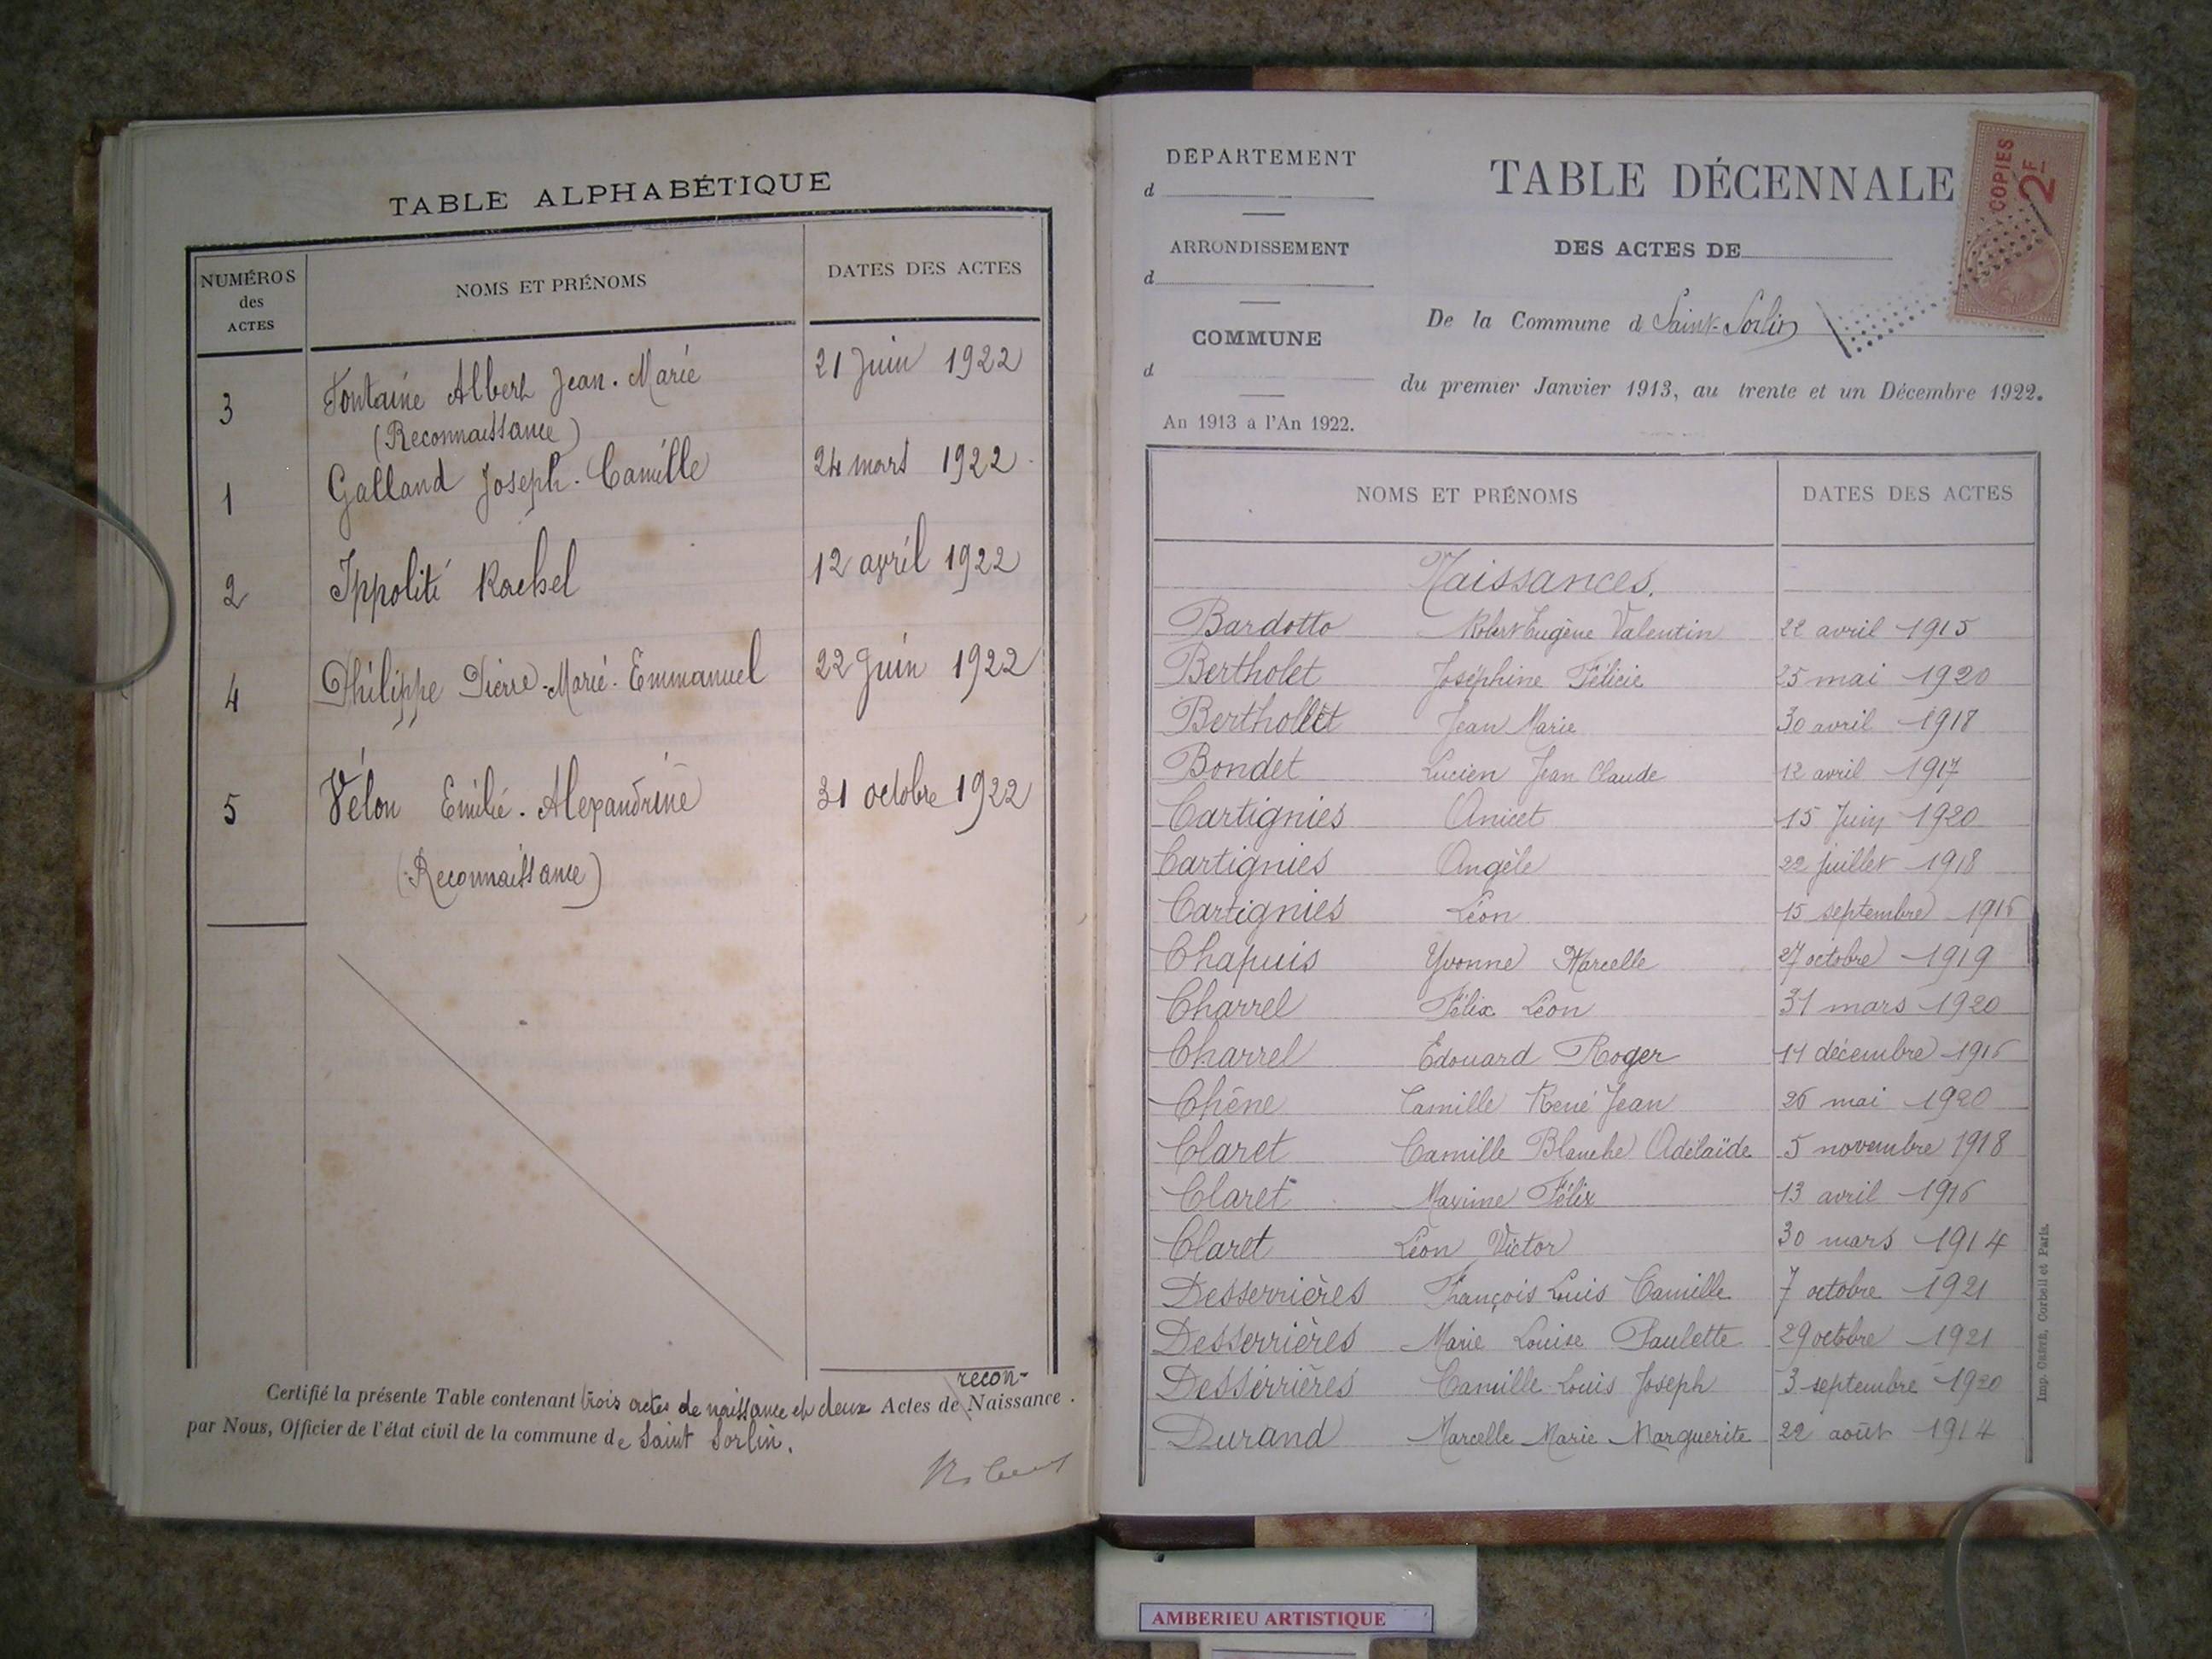 TABLE ALPHABÉTIQUE
NUMÉROS des ACTES NOMS ET PRÉNOMS DATES DES ACTES
3 Fontaine Albert Jean. Marie 21 Juin 1922
(Reconnaissance)
1 Galland Joseph. Camille 24 mars 1922
2 Ippolité Rachel 12 avril 1922
4 Philippe Pierre-Marie-Emmanuel 22 Juin 1922
5 Vélon Emilie. Alexandrine 31 octobre 1922
(Reconnaissance)
recon-
Certifié la présente Table contenant trois actes de naissance et deux Actes de Naissance.
par Nous, Officier de l'état civil de la commune de Saint Sorlin.
DÉPARTEMENT
d
ARRONDISSEMENT
d
COMMUNE
d
An 1913 à l'An 1922.
TABLE DÉCENNALE
DES ACTES DE
De la Commune d Saint-Sorlin
du premier Janvier 1913, au trente et un Décembre 1922.
COPIES
2F
NOMS ET PRÉNOMS DATES DES ACTES
Naissances.
Bardotto Robert Eugène Valentin 22 avril 1915
Bertholet Joséphine Félicie 25 mai 1920
Berthollet Jean Marie 30 avril 1918
Bondet Lucien Jean Claude 12 avril 1917
Cartignies Anicet 15 Juin 1920
Cartignies Angèle 22 juillet 1918
Cartignies Léon 15 septembre 1916
Chapuis Yvonne Marcelle 27 octobre 1919
Charrel Félix Léon 31 mars 1920
Charrel Edouard Roger 11 décembre 1916
Chêne Camille René Jean 26 mai 1920
Claret Camille Blanche Adélaïde 5 novembre 1918
Claret Maxime Félix 13 avril 1916
Claret Léon Victor 30 mars 1914
Desserrières François Louis Camille 7 octobre 1921
Desserrières Marie Louise Paulette 29 octobre 1921
Desserrières Camille Louis Joseph 3 septembre 1920
Durand Marcelle Marie Marguerite 22 août 1914
Imp. CRÉTÉ, Corbeil et Paris.
AMBERIEU ARTISTIQUE